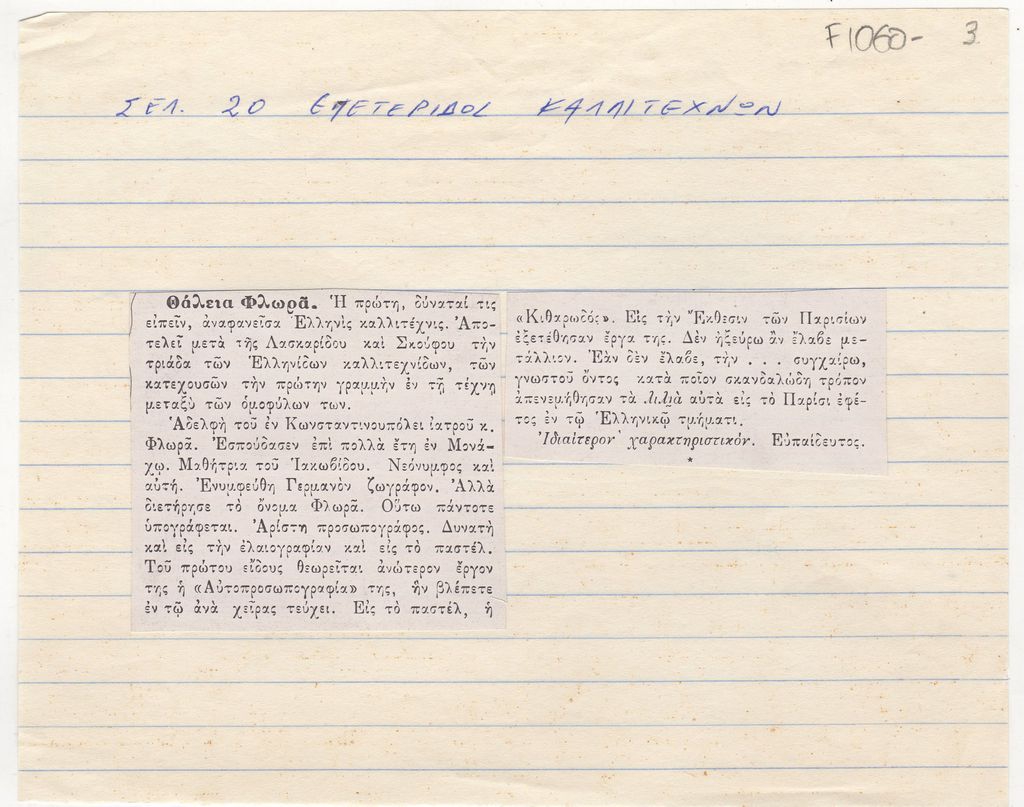 F1060- 3
ΣΕΛ. 20 ΕΠΕΤΕΡΙΔΟΣ ΚΑΛΛΙΤΕΧΝΩΝ
Θάλεια Φλωρᾶ. Ἡ πρώτη, δύναταί τις
εἰπεῖν, ἀναφανεῖσα Ἑλληνὶς καλλιτέχνις. Ἀπο-
τελεῖ μετὰ τῆς Λασκαρίδου καὶ Σκούφου τὴν
τριάδα τῶν Ἑλληνίδων καλλιτεχνίδων, τῶν
κατεχουσῶν τὴν πρώτην γραμμὴν ἐν τῇ τέχνῃ
μεταξὺ τῶν ὁμοφύλων των.
Ἀδελφὴ τοῦ ἐν Κωνσταντινουπόλει ἰατροῦ κ.
Φλωρᾶ. Ἐσπούδασεν ἐπὶ πολλὰ ἔτη ἐν Μονά-
χῳ. Μαθήτρια τοῦ Ἰακωβίδου. Νεόνυμφος καὶ
αὐτή. Ἐνυμφεύθη Γερμανὸν ζωγράφον. Ἀλλὰ
διετήρησε τὸ ὄνομα Φλωρᾶ. Οὕτω πάντοτε
ὑπογράφεται. Ἀρίστη προσωπογράφος. Δυνατὴ
καὶ εἰς τὴν ἐλαιογραφίαν καὶ εἰς τὸ παστέλ.
Τοῦ πρώτου εἴδους θεωρεῖται ἀνώτερον ἔργον
της ἡ «Αὐτοπροσωπογραφία» της, ἣν βλέπετε
ἐν τῷ ἀνὰ χεῖρας τεύχει. Εἰς τὸ παστέλ, ἡ
«Κιθαρωδός». Εἰς τὴν Ἔκθεσιν τῶν Παρισίων
ἐξετέθησαν ἔργα της. Δὲν ἠξεύρω ἂν ἔλαβε με-
τάλλιον. Ἐὰν δὲν ἔλαβε, τὴν . . . συγχαίρω,
γνωστοῦ ὄντος κατὰ ποῖον σκανδαλώδη τρόπον
ἀπενεμήθησαν τὰ αὐτὰ εἰς τὸ Παρίσι ἐφέ-
τος ἐν τῷ Ἑλληνικῷ τμήματι.
Ἰδιαίτερον χαρακτηριστικόν. Εὐπαίδευτος.
*